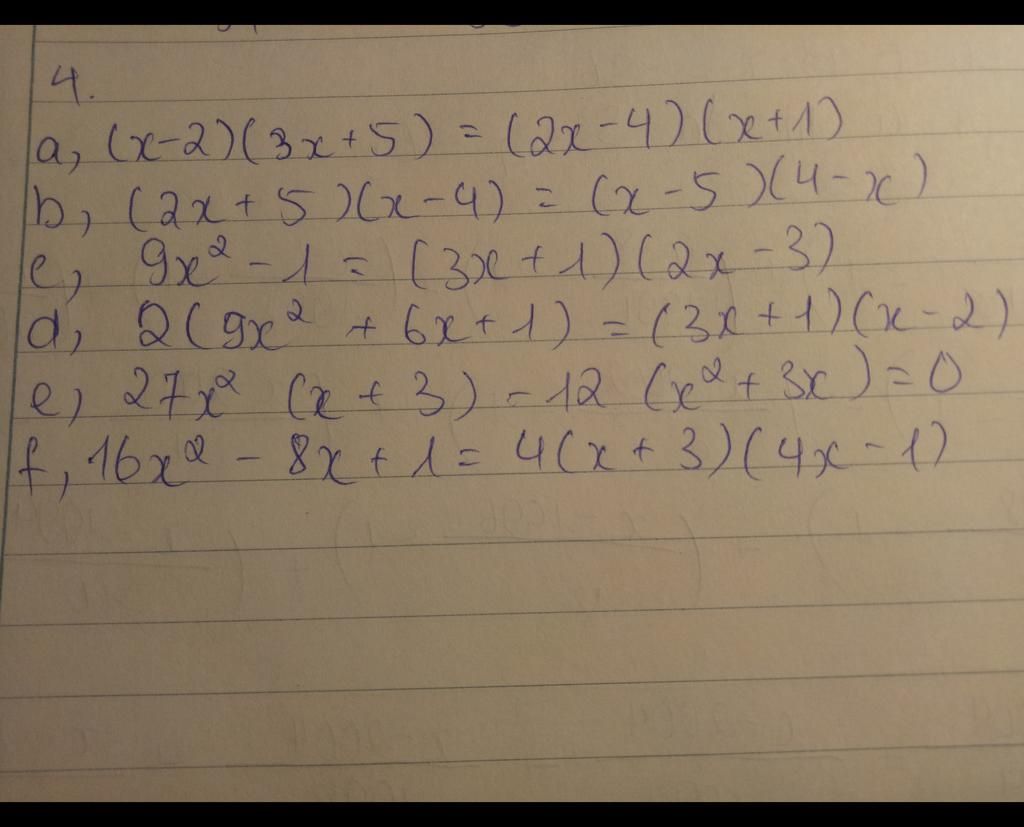 4.
a, (x-2)(3x+5) = (2x-4)(x+1)
b, (2x+5)(x-4) = (x-5)(4-x)
c, 9x² - 1 = (3x+1)(2x-3)
d, 2(9x² + 6x+1) = (3x+1)(x-2)
e, 27x² (x+3) - 12 (x²+3x) = 0
f, 16x² - 8x+1 = 4(x+3)(4x-1)